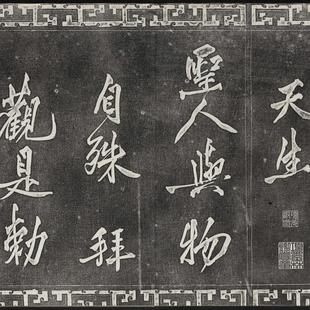 天生
聖人與物
自殊拜
觀是勅